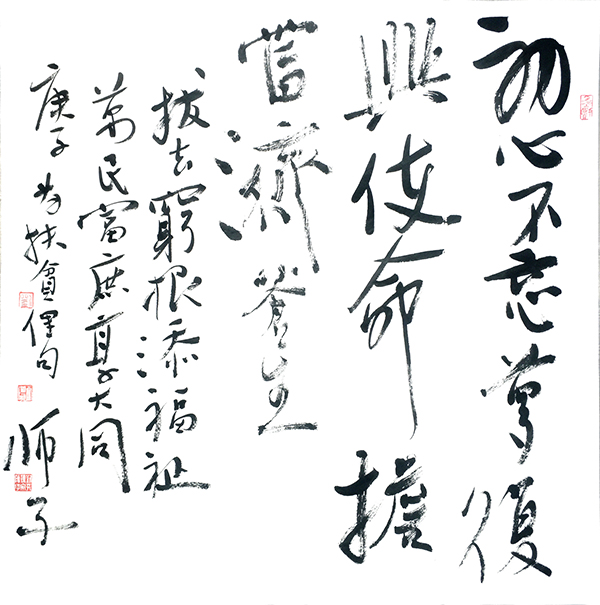 初心不忘夢復
興使命擔
當濟蒼生
拔去窮根添福祉
萬民富庶享大同
庚子为扶貧句
师